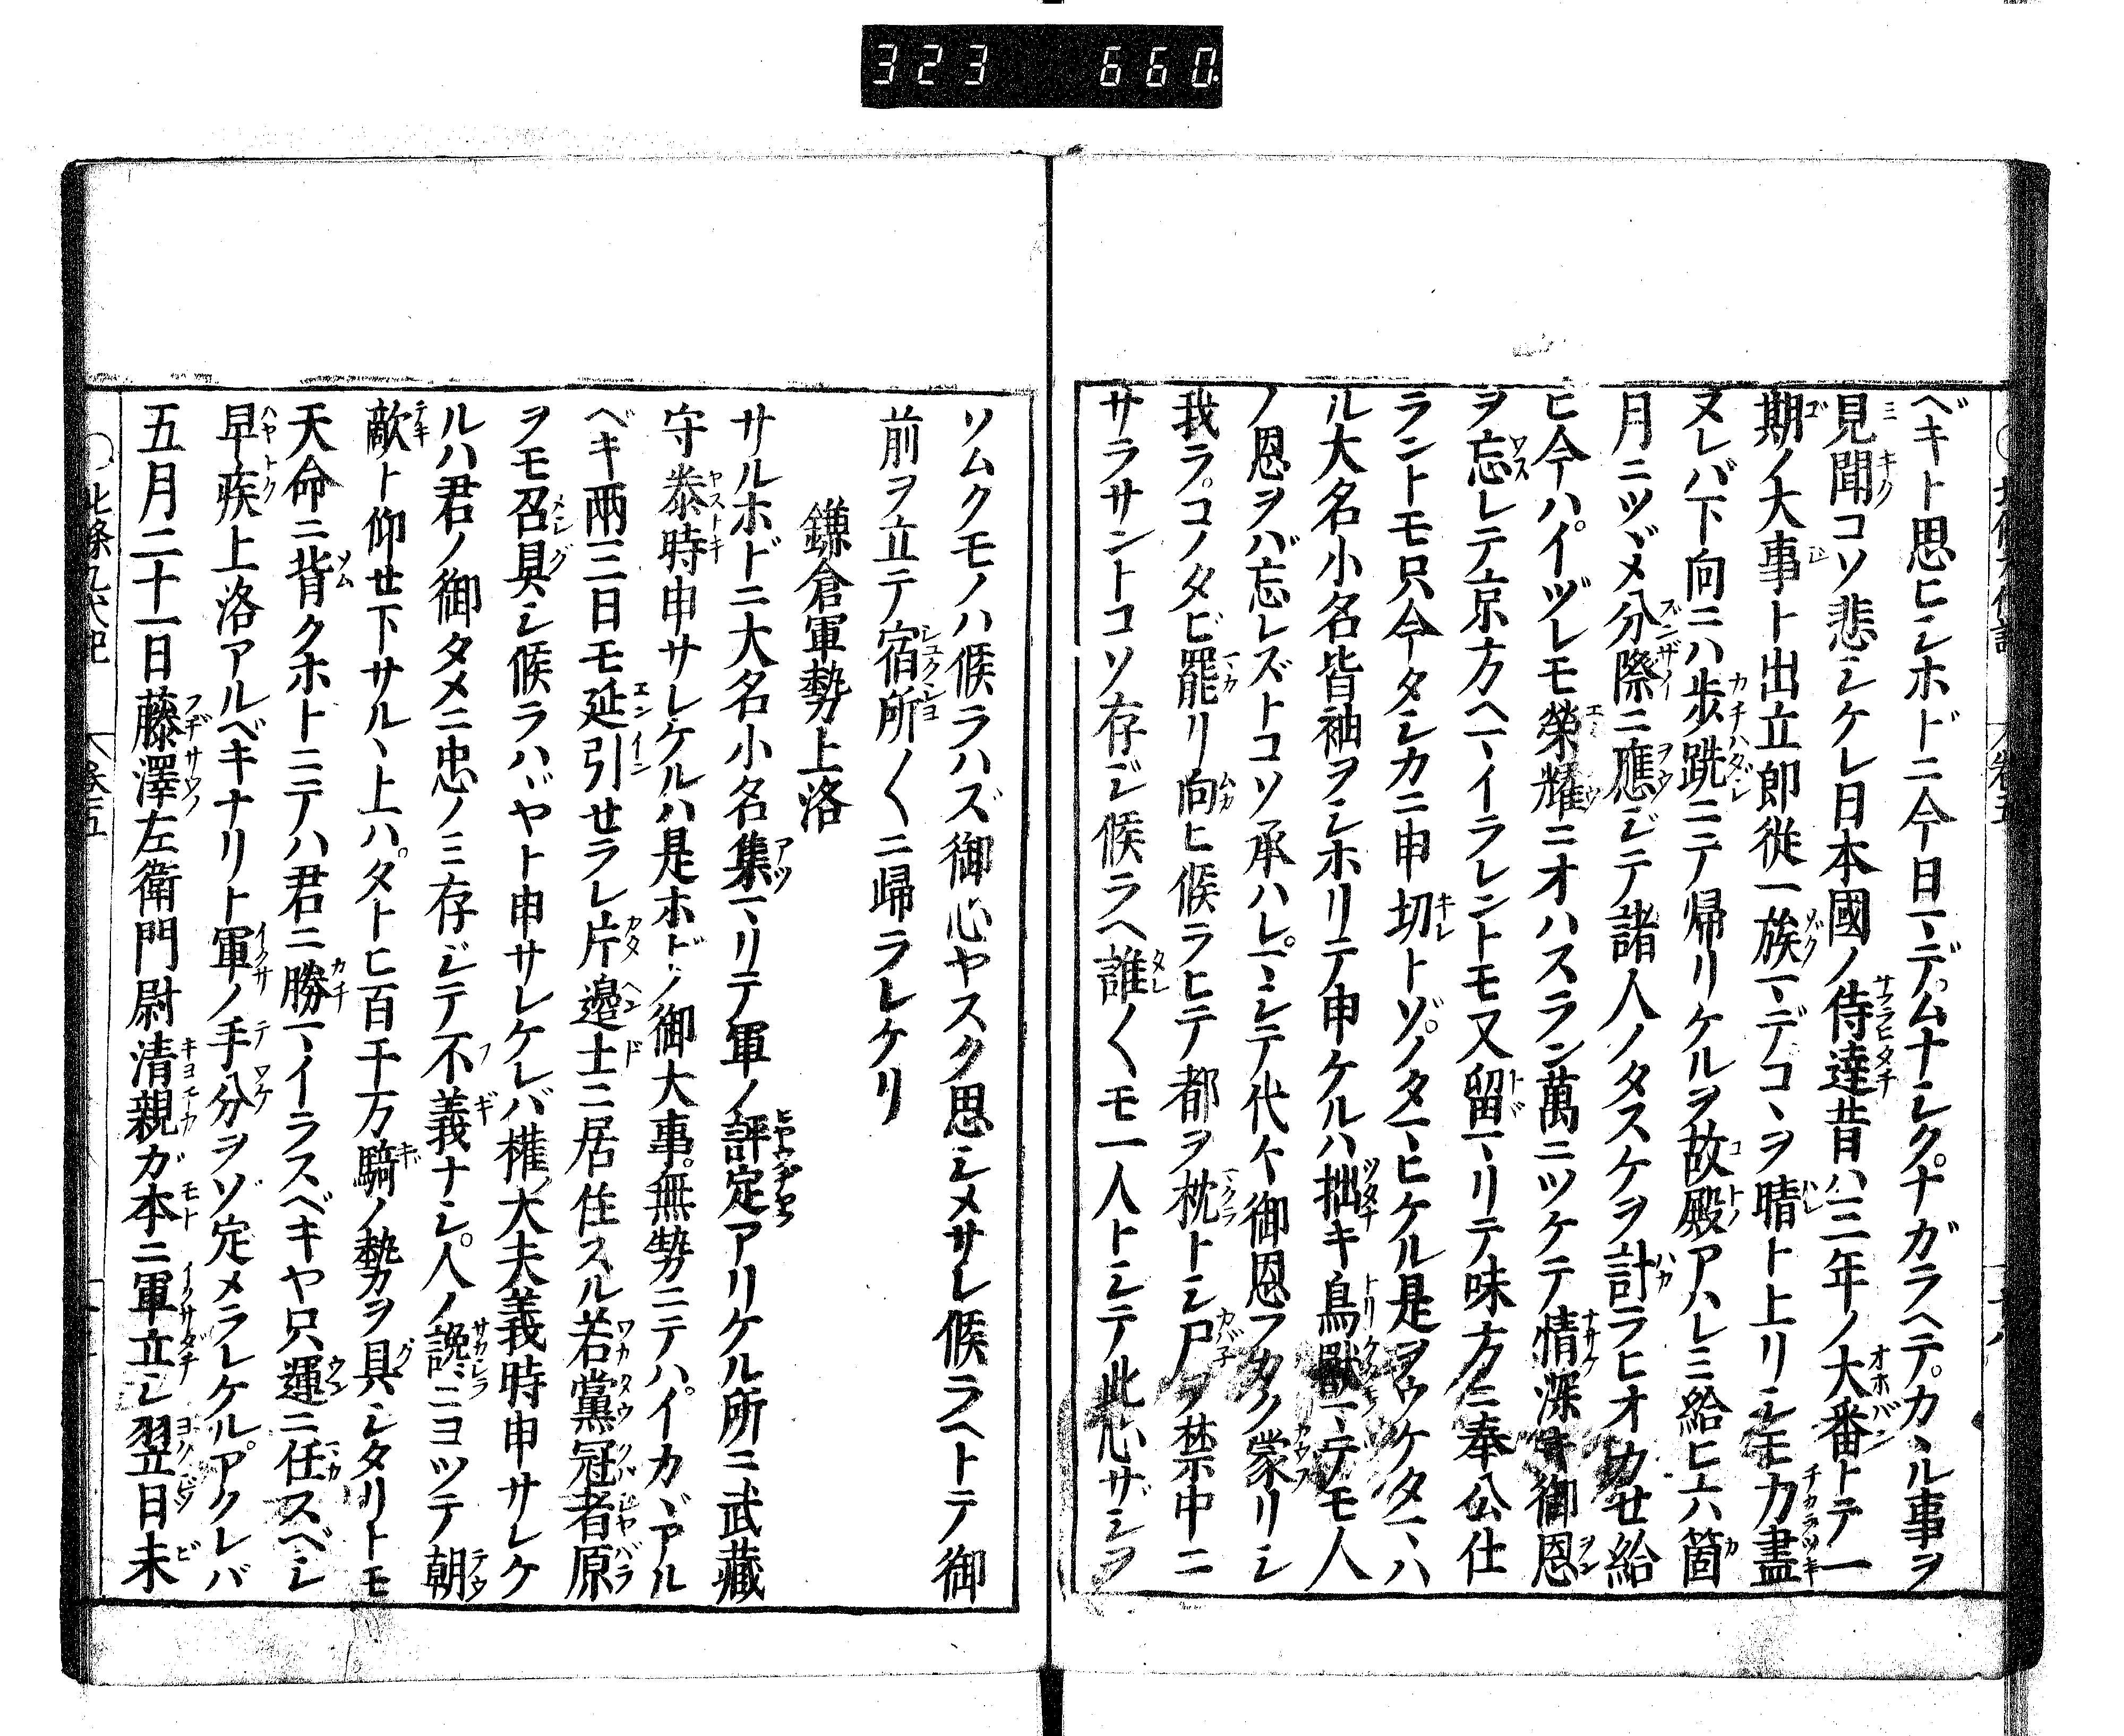 323 660
ベキト思ヒシホドニ今日マデムナシクナガラヘテカヽル事ヲ
見聞コソ悲シケレ日本國ノ侍達昔ハ三年ノ大番トテ一
期ノ大事ト出立郎従一族マデコヽヲ晴ト上リシモ力盡
ヌレバ下向ニハ歩跣ニテ帰リケルヲ故殿アハレミ給ヒ六箇
月ニツヾメ分際ニ應ジテ諸人ノタスケヲ計ラヒオカせ給
ヒ今ハイヅレモ榮耀ニオハスラン萬ニツケテ情深キ御恩
ヲ忘レテ京方ヘマイラレントモ又留マリテ味方ニ奉公仕
ラントモ只今タシカニ申切トゾノタマヒケル是ヲウケタマハ
ル大名小名皆袖ヲシホリテ申ケルハ拙キ鳥獸マデモ人
ノ恩ヲバ忘レズトコソ承ハレマシテ代々御恩フカク蒙リシ
我ラコノタビ罷リ向ヒ候ラヒテ都ヲ枕トシ尸ヲ禁中ニ
サラサントコソ存ジ候ラヘ誰〱モ一人トシテ此心ザシヲ
ソムクモノハ候ラハズ御心ヤスク思シメサレ候ラヘトテ御
前ヲ立テ宿所〱ニ歸ラレケリ
鎌倉軍勢上洛
サルホドニ大名小名集マリテ軍ノ評定アリケル所ニ武藏
守泰時申サレケルハ是ホドノ御大事無勢ニテハイカヾアル
ベキ兩三日モ延引せラレ片邉土ニ居住スル若黨冠者原
ヲモ召具シ候ラハヾヤト申サレケレバ權大夫義時申サレケ
ルハ君ノ御タメニ忠ノミ存ジテ不義ナシ人ノ讒ニヨツテ朝
敵ト仰せ下サルヽ上ハタトヒ百千万騎ノ勢ヲ具シタリトモ
天命ニ背クホトニテハ君ニ勝マイラスベキヤ只運ニ任スベシ
早疾上洛アルベキナリト軍ノ手分ヲゾ定メラレケルアクレバ
五月二十一日藤澤左衛門尉清親ガ本ニ軍立シ翌日未